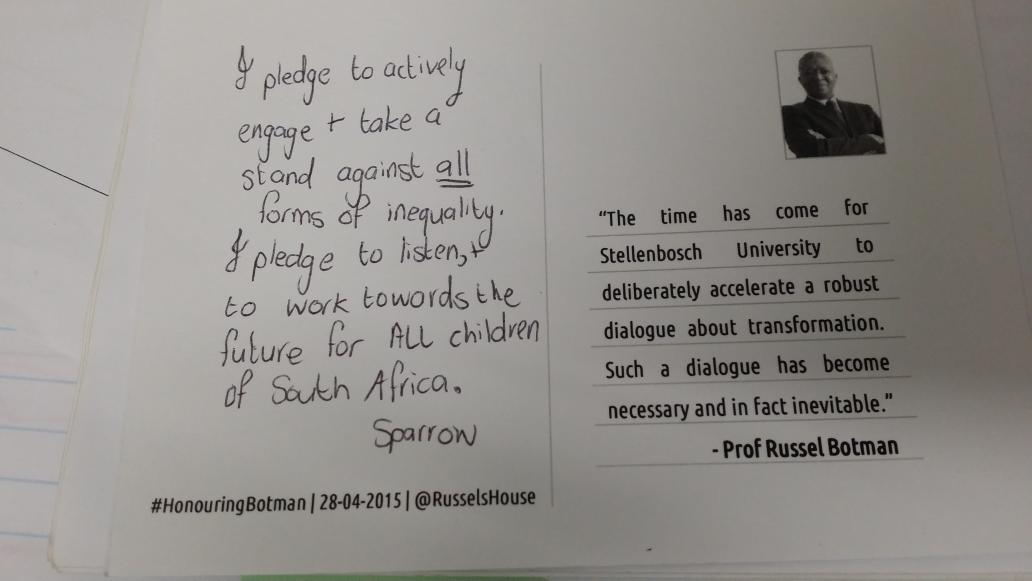 I pledge to actively
engage + take a
stand against all
forms of inequality.
I pledge to listen, +
to work towards the
future for ALL children
of South Africa.
Sparrow
#HonouringBotman | 28-04-2015 | @RusselsHouse
“The time has come for
Stellenbosch University to
deliberately accelerate a robust
dialogue about transformation.
Such a dialogue has become
necessary and in fact inevitable.”
- Prof Russel Botman